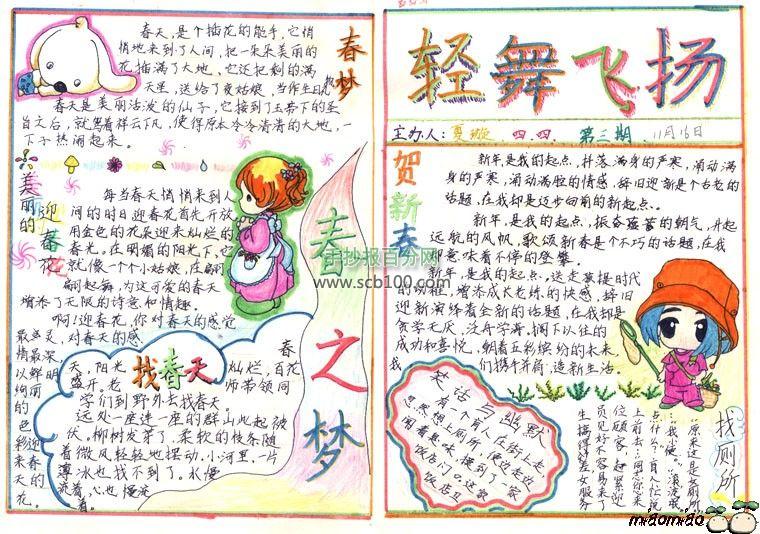 春天,是个插花的能手,它悄
悄地来到了人间,把一朵朵美丽的
花插满了大地,它还把剩的满
天星,送给了夏姑娘,当作生日礼物
春天是美丽活波的仙子,它接到了玉帝下的圣
旨之后,就驾着祥云下凡,使得原本冷冷清清的大地,一
下子热闹起来。
春梦
美丽的
迎春花
每当春天悄悄来到人
间的时日迎春花首先开放
用金色的花朵迎来灿烂的
春光。在明媚的阳光下,它
就像一个个小姑娘,在翩
翩起舞,为这可爱的春天
增添了无限的诗意和情趣。
啊!迎春花,你对春天的感觉
最灵
敏,对春天的感
情最深,
以鲜明
绚丽的
色彩迎
来春天的
花。
找春天
春
天,阳光
灿烂,百花
盛开。老
师带领同
学们到野外去找春天。
远处一座连一座的群山此起彼
伏。柳树发芽了,柔软的枝条随
着微风轻轻地摆动。小河里一片
薄冰也找不到了。水慢
流着,心也慢
春之梦
手抄报百分网
www.scb100.com
轻舞飞扬
主办人:夏璇 四.四. 第三期 11月16日
贺新春
新年,是我的起点,抖落满身的严寒,涌动满
身的严寒,涌动满腔的情感,辞旧迎新是个古老的
话题,在我却是迈步向前的新起点。
新年,是我的起点,振奋蓬勃的朝气,升起
远航的风帆,歌颂新春是个不巧的话题,在我
却意味着不停的登攀。
新年,是我的起点,送走蒙提时代
的幼稚,增添成长老练的快感,辞旧
迎新演绎着全新的话题,在我却是
贪学无厌,泛舟学海,搁下以往的
成功和喜悦,朝着五彩缤纷的未来,
我们携手并肩,造新生活。
笑话与幽默
找厕所
有一个盲人在街上走
忽然想上厕所,便边走边
闻着臭味,摸到了一家
饭店门口,这家
饭店卫
生搞得差,女服务
员见好不容易来了
位顾客,赶紧迎
上前去:“同志,您来
点什么?”盲人忙说
miaomiao